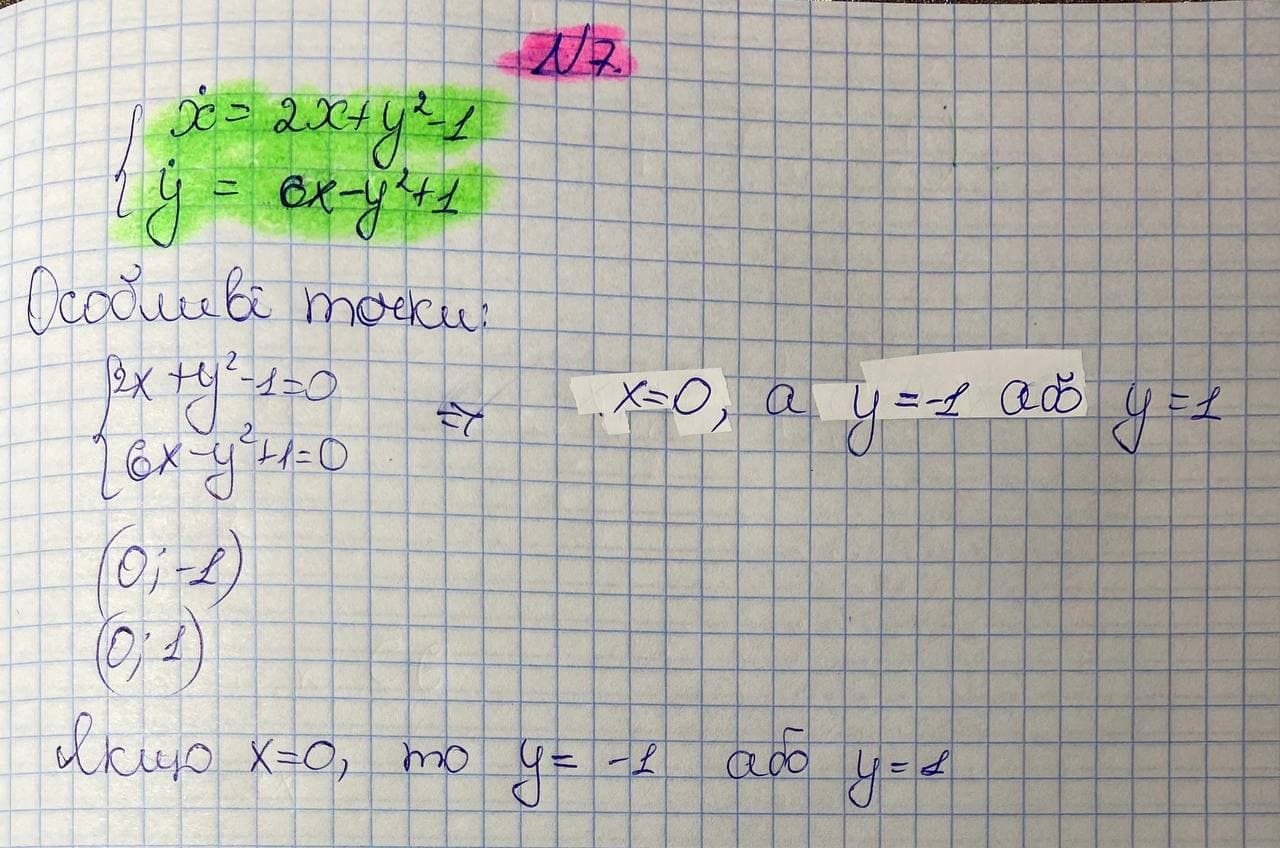 N7.
ẋ = 2x+y²-1
ẏ = 6x-y²+1
Особливі точки:
2x+y²-1=0
6x-y²+1=0
⇒ x=0, а y=-1 або y=1
(0;-1)
(0;1)
Якщо x=0, то y= -1 або y=1